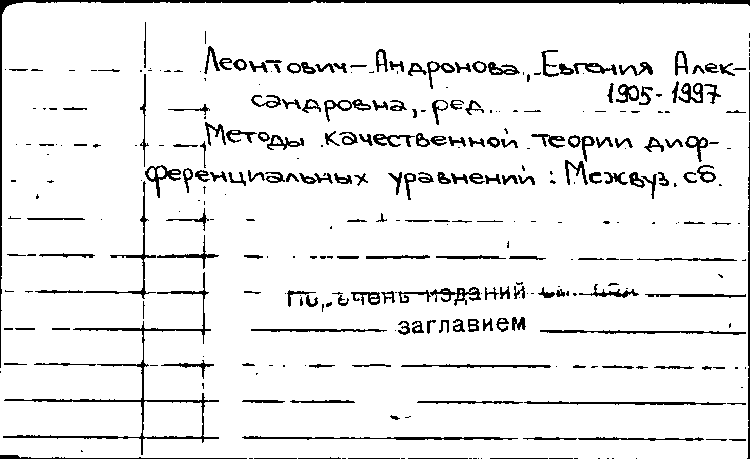 Леонтович-Андронова, Евгения Алек-
1905-1997
сандровна, ред.
Методы качественной теории диф-
ференциальных уравнений: Межвуз. сб.
изданий
заглавием